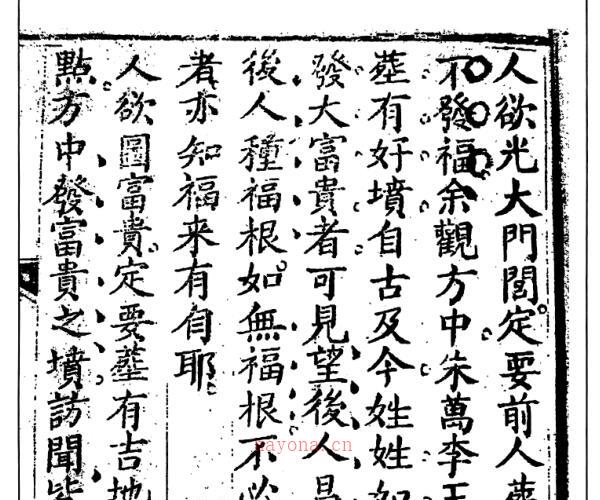 人欲光大門閭定要前人
不發福余觀方中朱萬李王
塟有好墳自古及今姓姓如
發大富貴者可見望後人
後人種福根如無福根不必
者亦知福来有自耶
人欲圖富貴定要塟有吉地
點方中發富貴之墳訪聞皆
nayona.cn